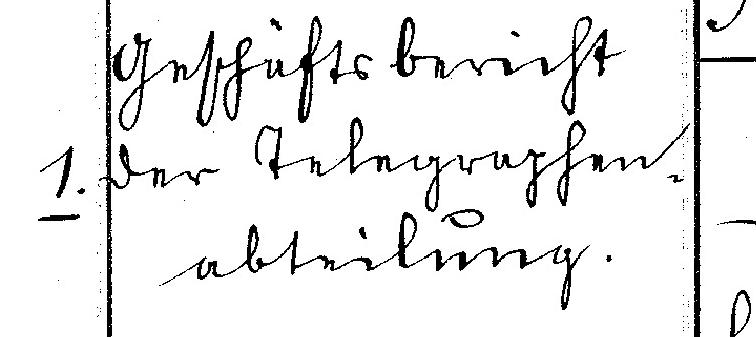 Geschäftsbericht
1. der Telegraphen-
abteilung.